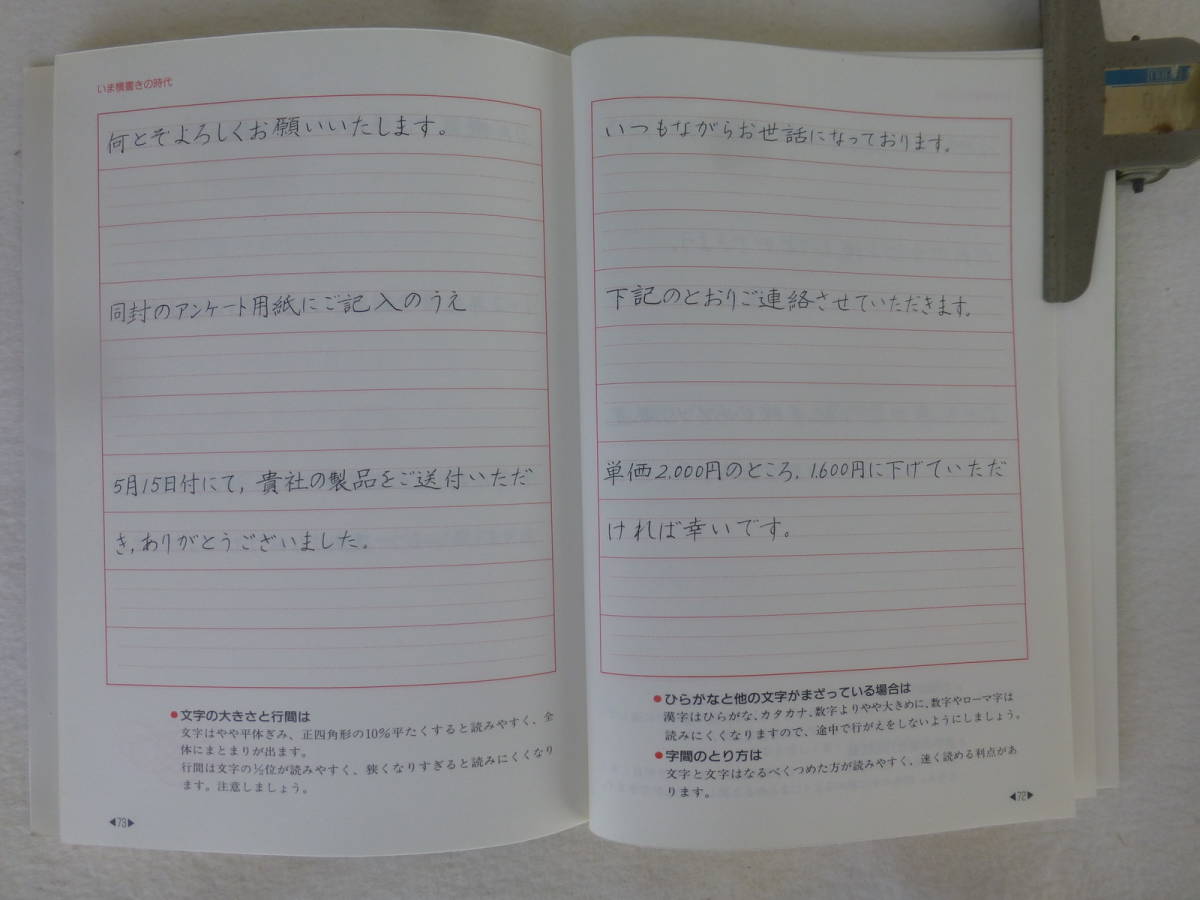 いま横書きの時代
何とぞよろしくお願いいたします。
同封のアンケート用紙にご記入のうえ
5月15日付にて,貴社の製品をご送付いただ
き,ありがとうございました.
●文字の大きさと行間は
文字はやや平体ぎみ、正四角形の10%平たくすると読みやすく、全
体にまとまりが出ます。
行間は文字の½位が読みやすく、狭くなりすぎると読みにくくなり
ます。注意しましょう。
◀73▶
いつもながらお世話になっております。
下記のとおりご連絡させていただきます。
単価2,000円のところ,1,600円に下げていただ
ければ幸いです。
●ひらがなと他の文字がまざっている場合は
漢字はひらがな、カタカナ、数字よりやや大きめに、数字やローマ字は
読みにくくなりますので、途中で行がえをしないようにしましょう。
●字間のとり方は
文字と文字はなるべくつめた方が読みやすく、速く読める利点があ
ります。
◀72▶